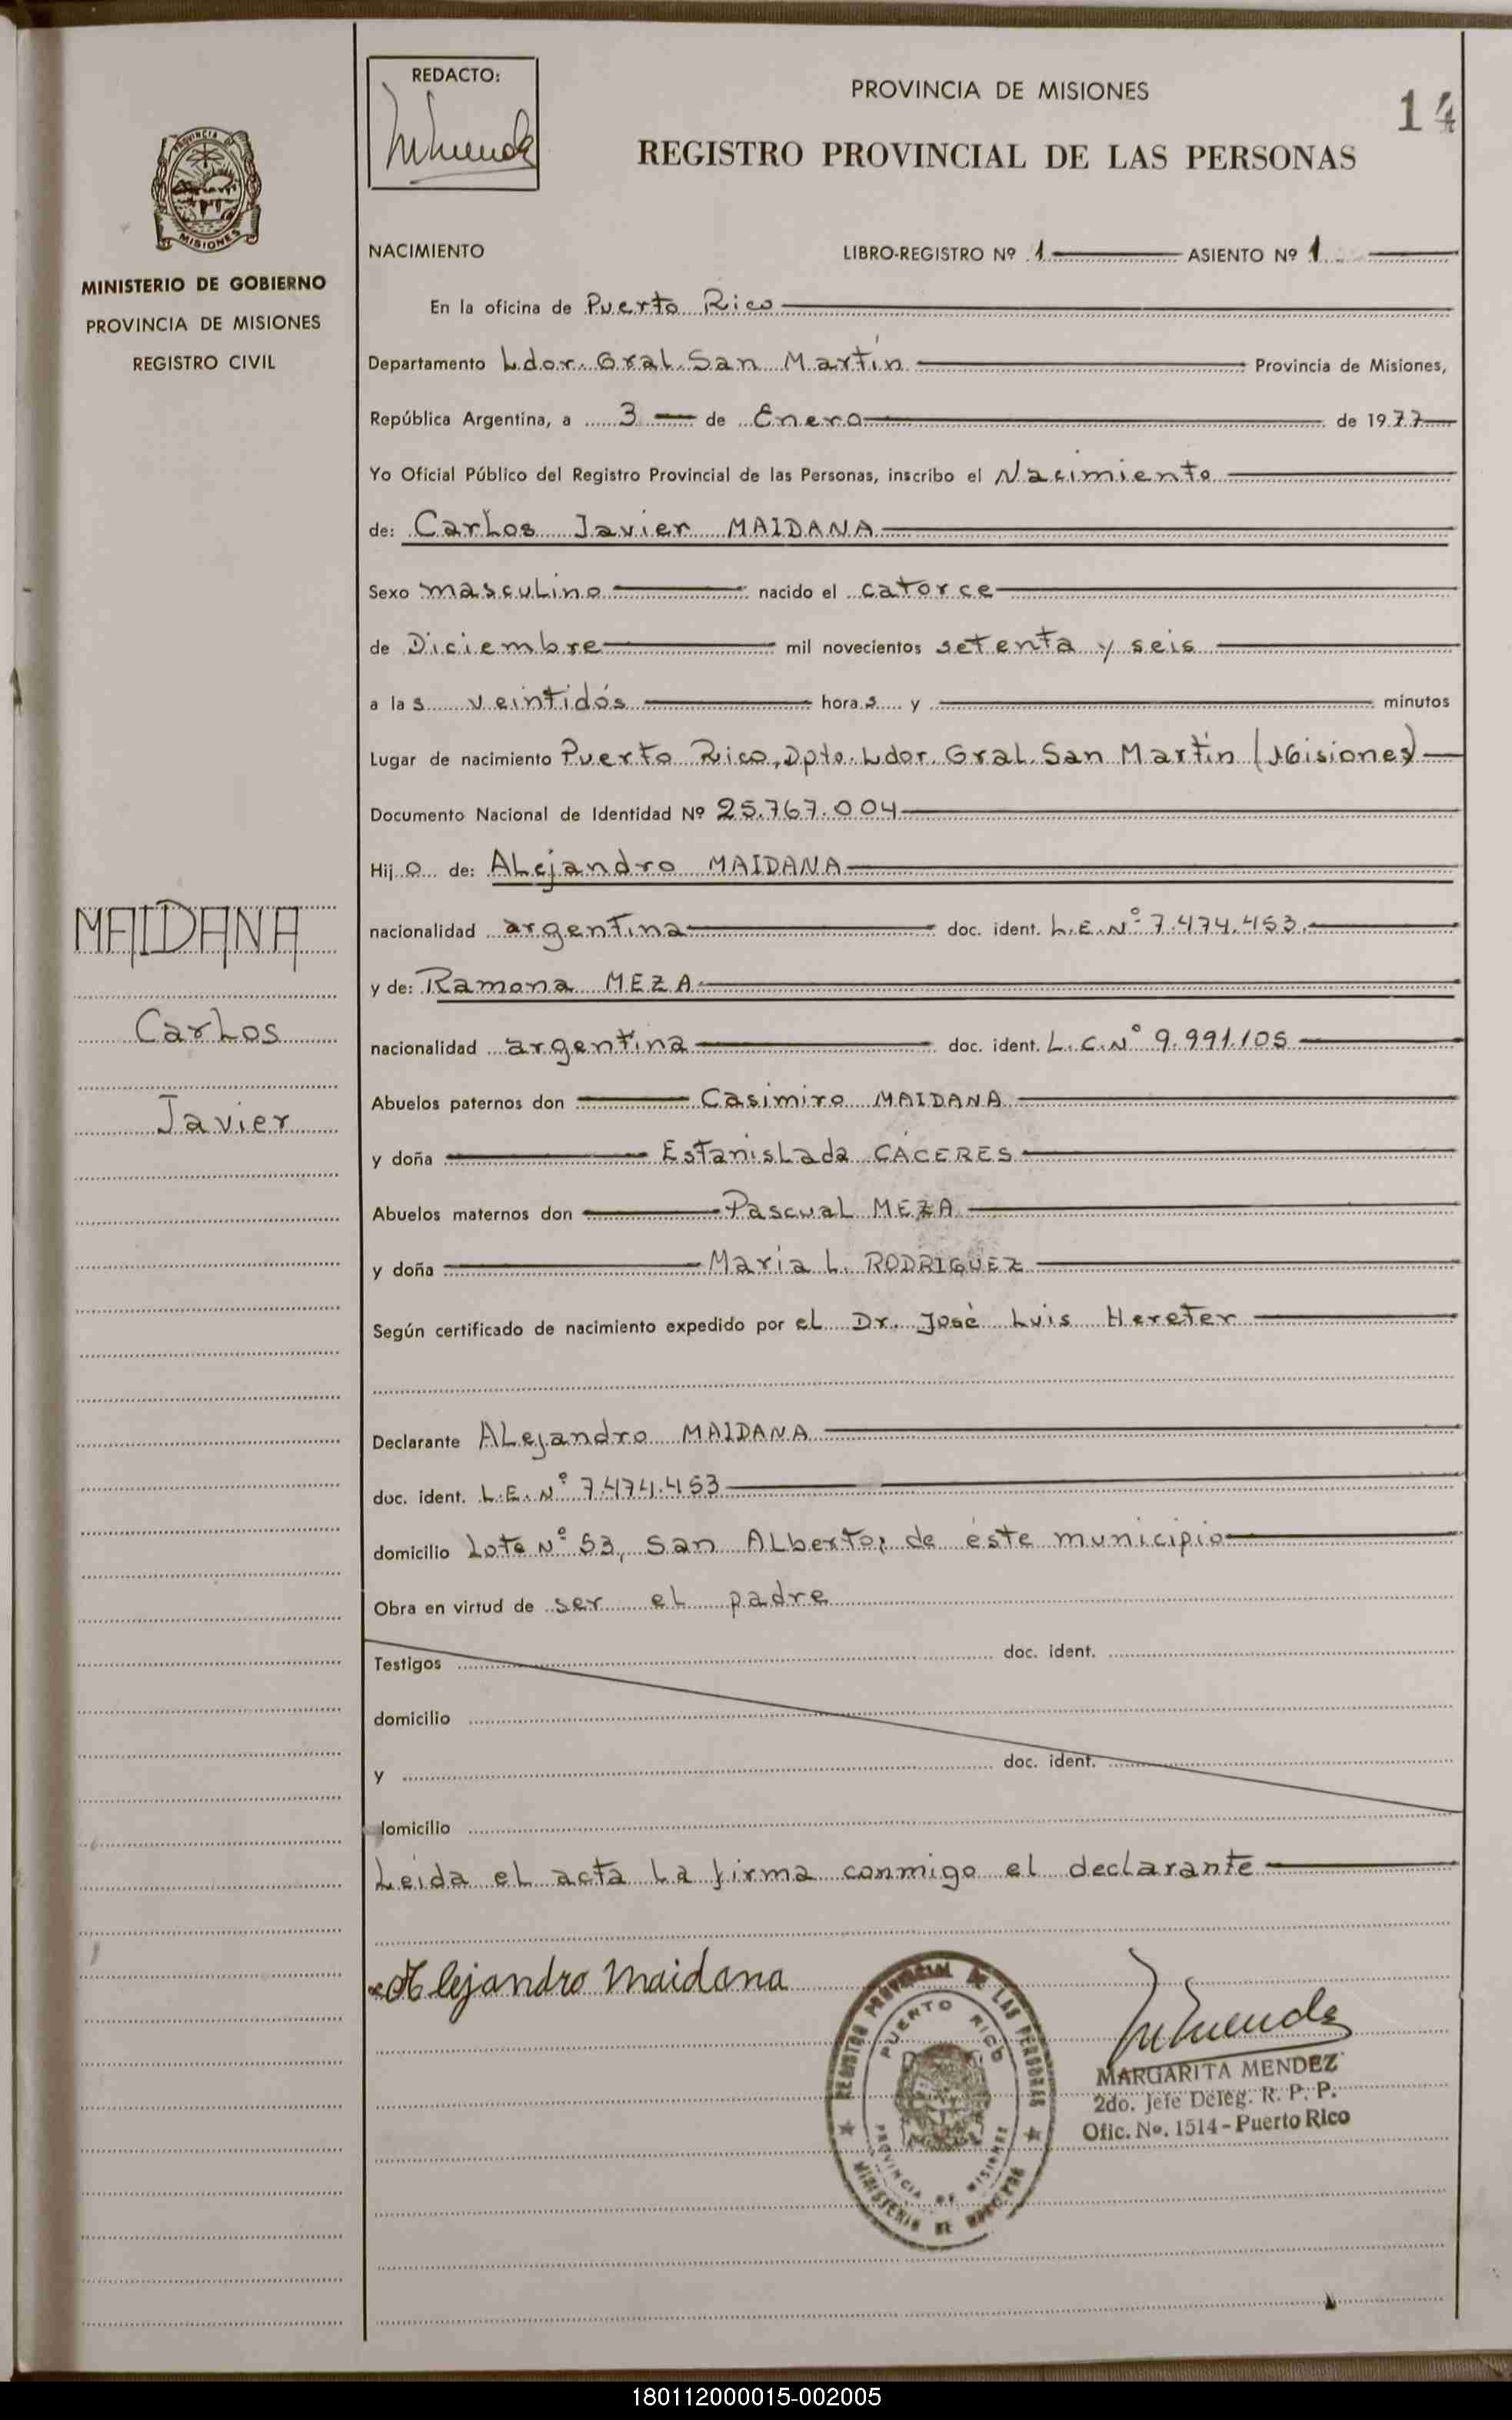 REDACTO:
PROVINCIA DE MISIONES
14
REGISTRO PROVINCIAL DE LAS PERSONAS
PROVINCIA DE
MISIONES
MINISTERIO DE GOBIERNO
PROVINCIA DE MISIONES
REGISTRO CIVIL
NACIMIENTO LIBRO-REGISTRO Nº 1 ASIENTO Nº 1
En la oficina de Puerto Rico
Departamento Ldor. Gral. San Martín Provincia de Misiones,
República Argentina, a 3 de Enero de 1977
Yo Oficial Público del Registro Provincial de las Personas, inscribo el Nacimiento
de: Carlos Javier MAIDANA
Sexo masculino nacido el catorce
de Diciembre mil novecientos setenta y seis
a las veintidós horas y minutos
Lugar de nacimiento Puerto Rico, Dpto. Ldor. Gral. San Martín (Misiones)
Documento Nacional de Identidad Nº 25.767.004
Hijo de: Alejandro MAIDANA
nacionalidad argentina doc. ident. L.E.Nº 7.474.453.
y de: Ramona MEZA
nacionalidad argentina doc. ident. L.C.Nº 9.991.105
Abuelos paternos don Casimiro MAIDANA
y doña Estanislada CÁCERES
Abuelos maternos don Pascual MEZA
y doña María L. RODRIGUEZ
Según certificado de nacimiento expedido por el Dr. José Luis Hereter
Declarante Alejandro MAIDANA
doc. ident. L.E. Nº 7.474.453
domicilio Lote Nº 53, San Alberto, de éste municipio
Obra en virtud de ser el padre
Testigos doc. ident.
domicilio
y doc. ident.
domicilio
Leída el acta la firma conmigo el declarante
MAIDANA
Carlos
Javier
Alejandro Maidana
REGISTRO PROVINCIAL DE LAS PERSONAS
PUERTO RICO
PROVINCIA DE MISIONES
MINISTERIO DE GOBIERNO
MARGARITA MENDEZ
2do. Jefe Deleg. R. P. P.
Ofic. No. 1514 - Puerto Rico
180112000015-002005